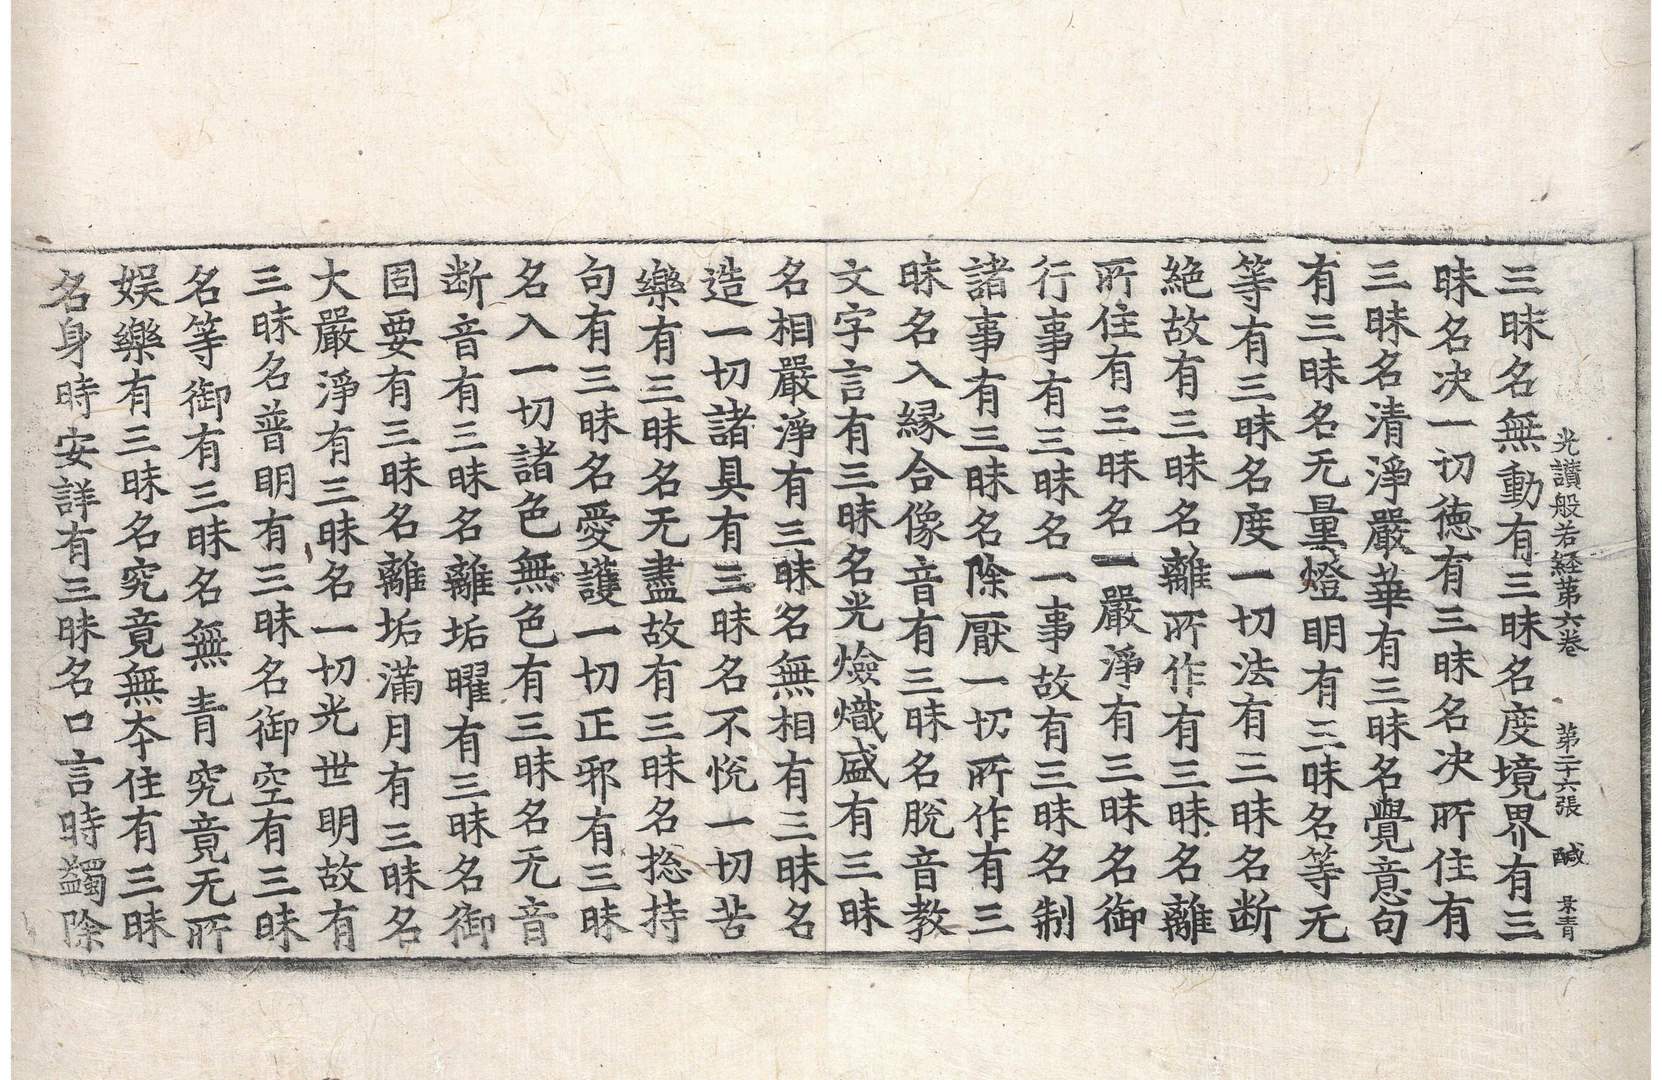 光讚般若経苐六卷 第二十六張 醎 景青
三昧名無動有三昧名度境界有三
昧名决一切徳有三昧名决所住有
三昧名清淨嚴華有三昧名覺意句
有三昧名无量燈明有三昧名等无
等有三昧名度一切法有三昧名断
絶故有三昧名離所作有三昧名離
所住有三昧名一嚴淨有三昧名御
行事有三昧名一事故有三昧名制
諸事有三昧名除厭一切所作有三
昧名入縁合像音有三昧名脫音教
文字言有三昧名光燄熾盛有三昧
名相嚴淨有三昧名無相有三昧名
造一切諸具有三昧名不悅一切苦
樂有三昧名无盡故有三昧名捴持
句有三昧名愛護一切正邪有三昧
名入一切諸色無色有三昧名无音
断音有三昧名離垢曜有三昧名御
固要有三昧名離垢滿月有三昧名
大嚴淨有三昧名一切光世明故有
三昧名普明有三昧名御空有三昧
名等御有三昧名無青究竟无所
娛樂有三昧名究竟無夲住有三昧
名身時安詳有三昧名口言時蠲除